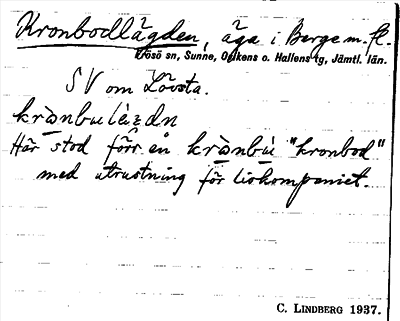 Kronbodlägden, äga i Berge m. fl.
Frösö sn, Sunne, Ovikens o. Hallens tg, Jämtl. län.
SV om Lövsta.
krȧnbulèᶎdn
Här stod förr en krȧnbù "kronbod"
med utrustning för livkompaniet.
C. LINDBERG 1937.